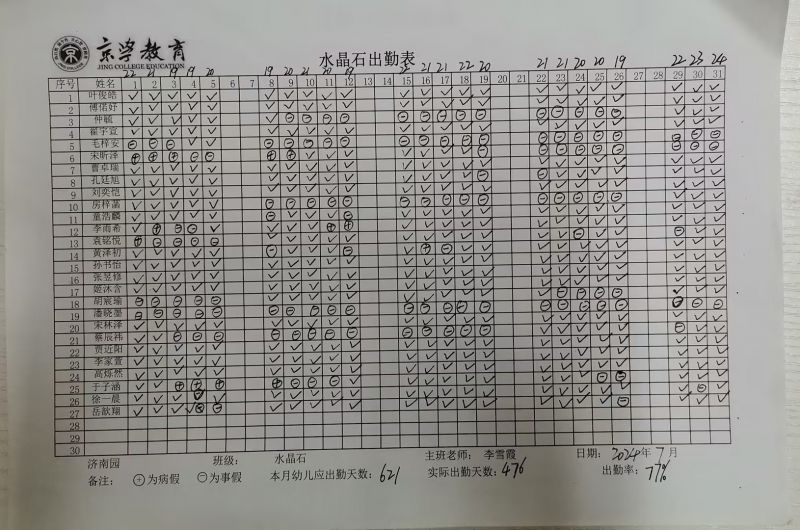 京学教育
JING COLLEGE EDUCATION
水晶石出勤表
22 21 19 19 20 19 20 21 20 19 21 21 22 20 21 21 20 20 19 22 23 24
序号 姓名 1 2 3 4 5 6 7 8 9 10 11 12 13 14 15 16 17 18 19 20 21 22 23 24 25 26 27 28 29 30 31
1 叶俊皓
2 傅偌妤
3 仲毓
4 翟宇萱
5 毛梓安
6 宋昕泽
7 曹卓瑞
8 孔廷旭
9 刘奕恺
10 房梓菡
11 童浩麟
12 李雨希
13 袁铭悦
14 黄泽初
15 孙书怡
16 张昱修
17 姬沐含
18 胡宸瑜
19 潘晓墨
20 宋林泽
21 蔡辰祎
22 贾近阳
23 李家萱
24 高烁然
25 于子涵
26 徐一晨
27 岳歆翔
28
29
30
济南园 班级: 水晶石 主班老师: 李雪霞 日期: 2024年 7月
备注: ⊕为病假 ⊖为事假 本月幼儿应出勤天数: 621 实际出勤天数: 476 出勤率: 77%